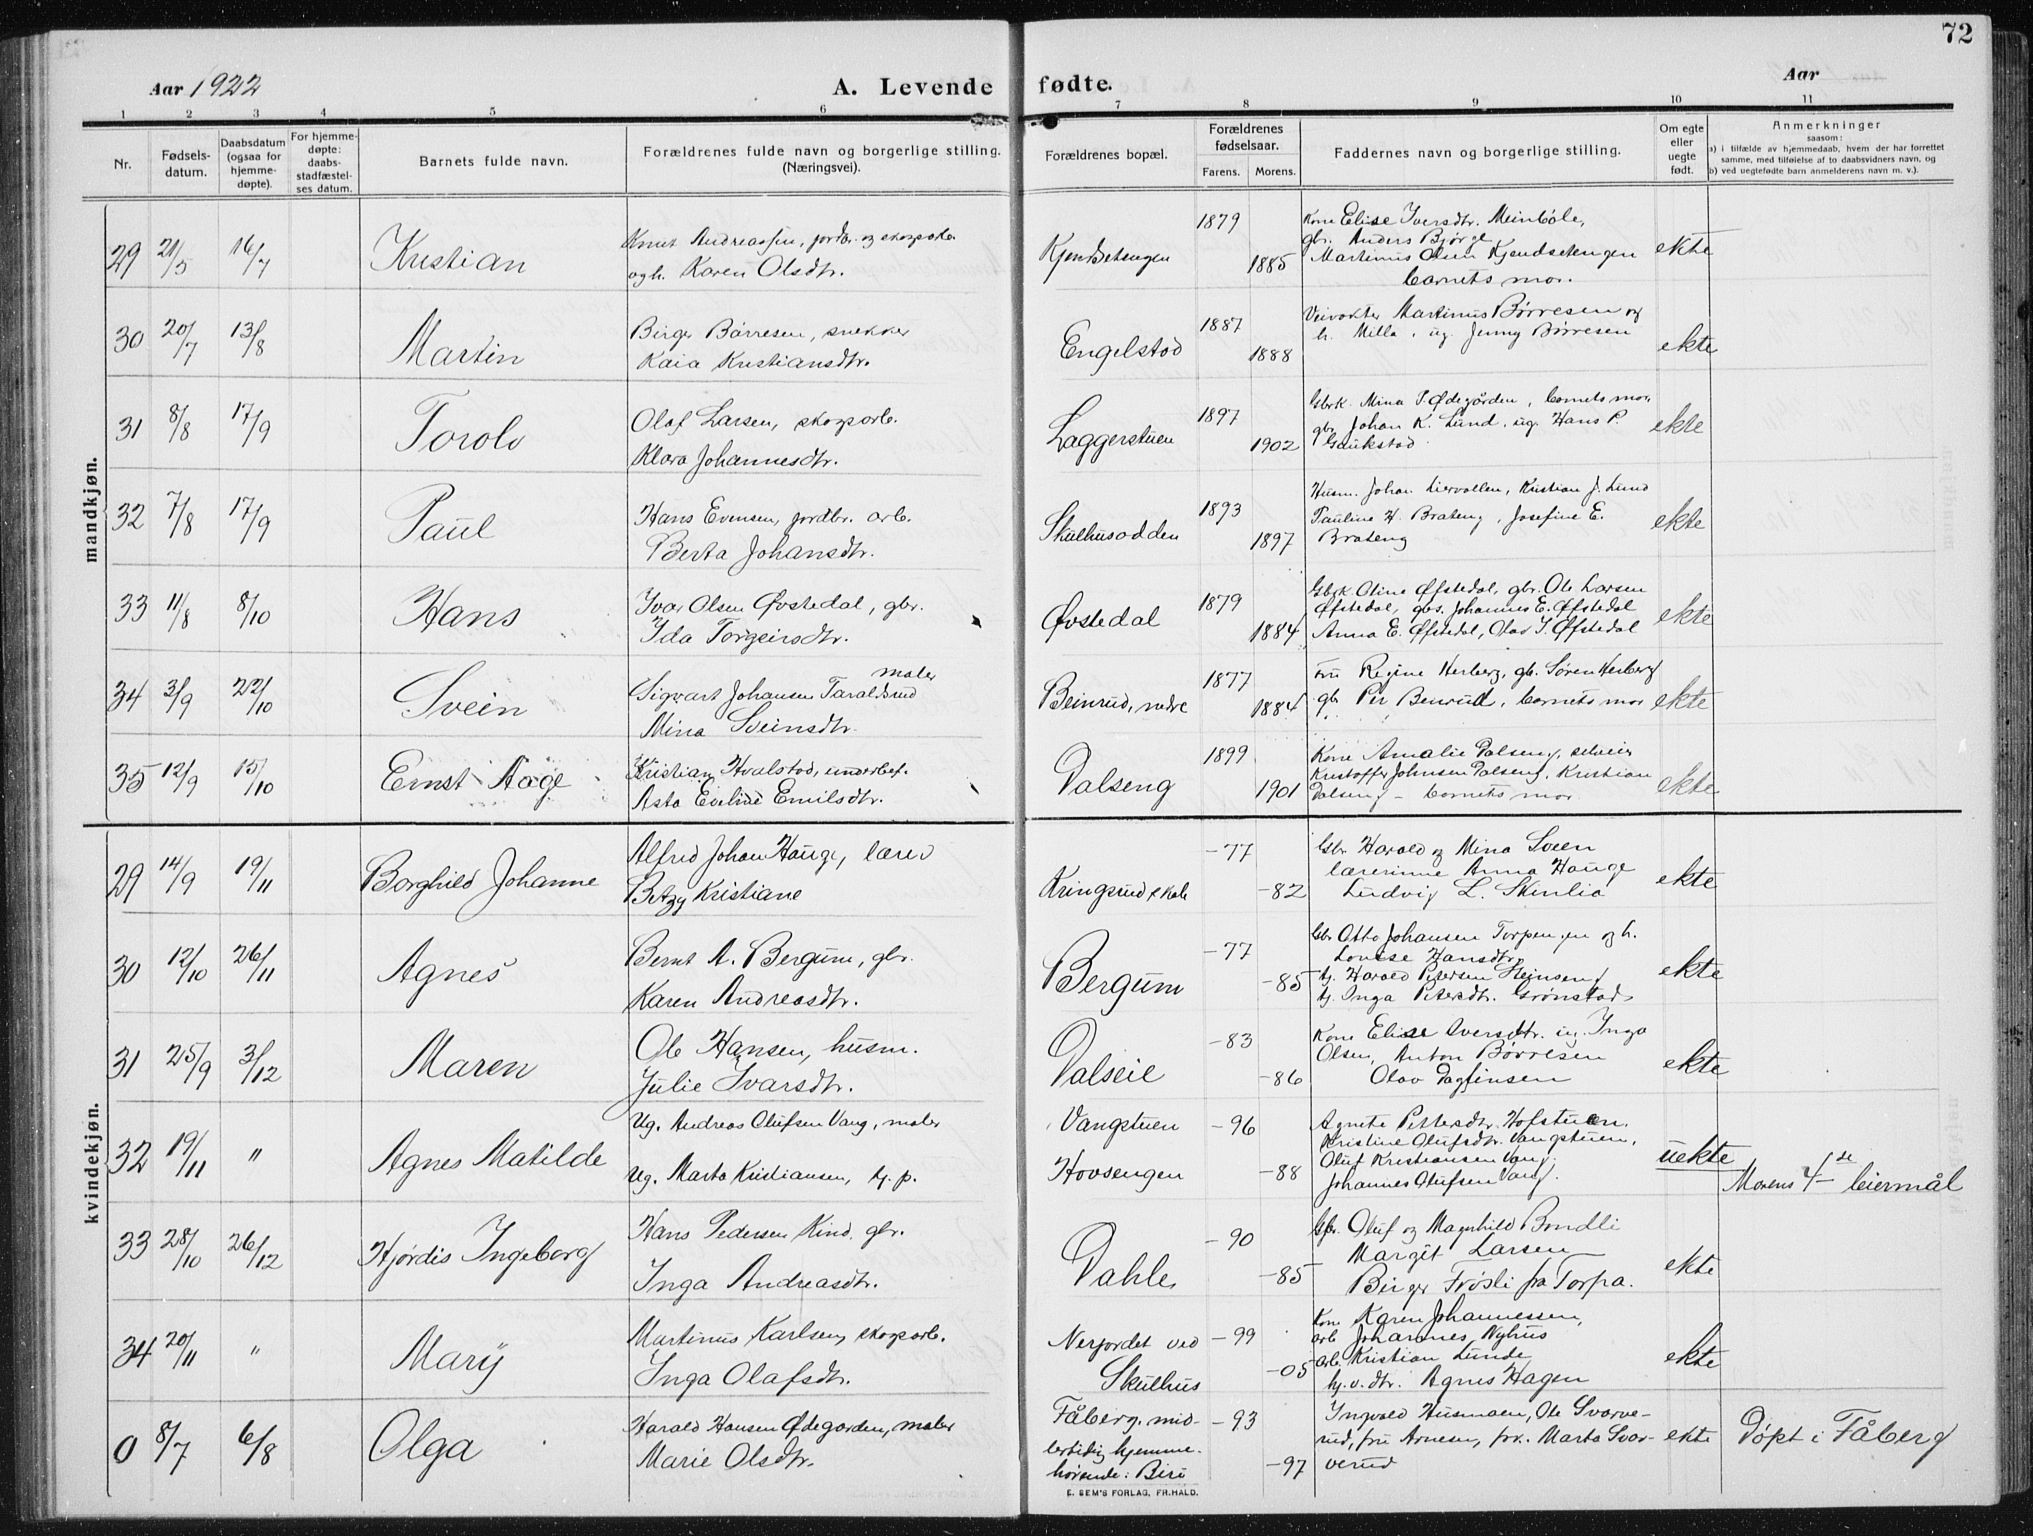 72
Aar 1922 A. Levende fødte. Aar
1 2 3 4 5 6 7 8 9 10 11
Nr. Fødsels-datum. Daabsdatum (ogsaa for hjemme-døpte). For hjemme-døpte: daabs-stadfæstel-ses datum. Barnets fulde navn. Forældrenes fulde navn og borgerlige stilling. (Næringsvei). Forældrenes bopæl. Forældrenes fødselsaar. Farens. Morens. Faddernes navn og borgerlige stilling. Om egte eller uegte født. Anmerkninger
saasom:
a) i tilfælde av hjemmedaab, hvem der har forrettet samme, med tilføielse af to daabsvidners navn, og
b) ved uegtefødte barn anmelderens navn m. v.).
mandkjøn.
29 21/5 16/7 Kristian Knut Andreassen, jordbr. og skogsarb. 1879 Kone Elise Iversdtr. Meinbøle,
gbr. Anders Bjørge
ogh. Karen Olsdtr. Kjendsetengen 1885 Martinus Olsen Kjendsetengen ekte
barnets mor.
30 20/7 13/8 Martin Birger Børresen, snekker 1887 Veivokter Martinus Børresen og
h. Milla, ug. Jenny Børresen
Kaia Kristiansdtr. Engelstad 1888 ekte
31 8/8 17/9 Torolv Olaf Larsen, skogsarb. 1897 Gbrk. Mina P. Ødegården, barnets mor,
gbr. Johan K. Lund, ug. Hans P.
Klara Johannesdtr. Laggerstuen 1902 Gaukstad ekte
32 7/8 17/9 Paul Hans Evensen, jordbr. arb. 1893 Husm. Johan Liervollen, Kristian J. Lund
Pauline H. Brateng, Josefine E.
Berta Johansdtr. Skulhusodden 1897 Brateng ekte
33 11/8 8/10 Hans Ivar Olsen Øvstedal, gbr. 1879 Gbrk Oline Øfstedal, gbr. Ole Larsen
Øfstedal, gbs. Johannes E. Øfstedal
Ida Torgeirsdtr. Øvstedal 1884 Anna E. Øfstedal, Olav I. Øfstedal ekte
34 3/9 22/10 Svein Sigvart Johansen Taraldsrud maler 1877 Fru Regine Herberg, gb. Søren Herberg
Mina Sveinsdtr. Beinrud, nedre 1884 gb Per Benrud, barnets mor ekte
35 12/9 15/10 Ernst Aage Kristian Hvalstad, underbef. 1899 Kone Amalie Dalseng, selveier
Kristoffer Johnsen Dalseng, Kristian
Asta Eveline Emilsdtr. Dalseng 1901 Dalseng – barnets mor ekte
kvindekjøn.
29 14/9 19/11 Borghild Johanne Alfred Johan Hauge, lærer -77 Gbr Harald og Mina Sveen
lærerinne Anna Hauge
Betzy Kristiane Kringsrud skole -82 Ludvig L. Skinlia ekte
30 12/10 26/11 Agnes Bernt A. Bergum, gbr. -77 Gbr Otto Johansen Torpen, en og h.
Lovise Hansdtr.
Karen Andreasdtr. Bergum -85 tj. Harald Petersen
tj. Inga Petersdtr. Grønstad ekte
31 25/9 3/12 Maren Ole Hansen, husm. -83 Kone Elise Iversdtr. ug. Inga
Olsen, Anton Børresen
Julie Ivarsdtr. Dalseie -86 Olav Dagfinsen ekte
32 19/11 " Agnes Matilde Ug. Andreas Olufsen Vang, maler Vangstuen -96 Agnete Pettersdtr. Hofstuen,
Kristine Olufsdtr. Vangstuen,
Ug. Marta Kristiansen, tj. p. Hovsengen -88 Oluf Kristiansen Vang, uekte
Johannes Olufsen Vang. Morens 4de leiermål
33 28/10 26/12 Hjørdis Ingeborg Hans Pedersen Kind, gbr. -90 Gbr. Oluf og Magnhild Bondli
Margit Larsen
Inga Andreasdtr. Dahle -85 Birger Frøsli fra Torpa. ekte
34 20/11 " Mary Martinus Karlsen, skogsarb. Nerjordet ved -99 Kone Karen Johannessen,
arb Johannes Nyhus
Inga Olafsdtr. Skulhus -05 arb. Kristian Lunde ekte
tj. v. dtr. Agnes Hagen
0 8/7 6/8 Olga Harald Hansen Ødegarden, maler Fåberg, mid- -93 Ingvald Husmoen, Ole Svarve-
Marie Olsdtr. lertidig hjemme- rud, fru Arnesen, frk. Marta Svar- ekte Døpt i Fåberg
hørende i Biri -97 verud
E. SEM'S FORLAG, FR.HALD.